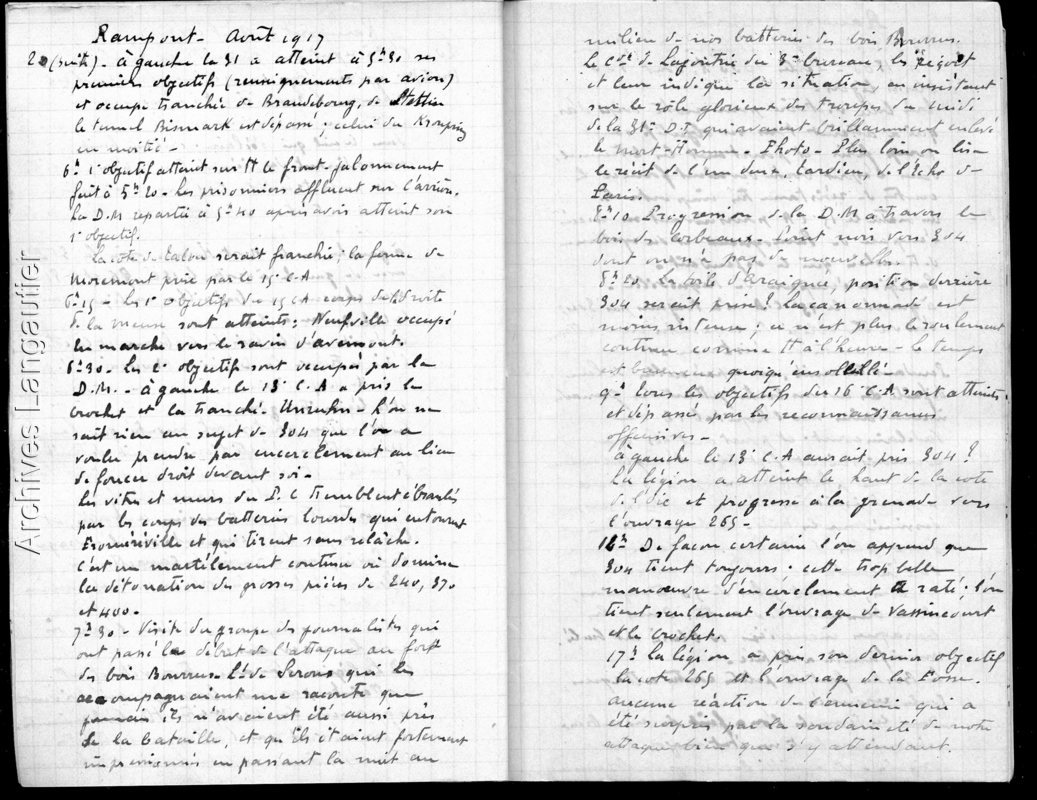 Rampont - Août 1917
20 (suite) - à gauche la 31 a atteint à 5h30 ses
premiers objectifs (renseignements par avion)
et occupe tranchée de Brandebourg, de Stettin
le tunnel Bismark est dépassé ; celui du Kronprinz
en moitié -
6h 1er objectif atteint sur tt le front - jalonnement
fait à 5h20 - les prisonniers affluent sur l'arrière.
La D.M repartie à 5h40 après avoir atteint son
1er objectif.
La cote de Talou serait franchie ; la ferme de
Mormont prise par le 15e C.A
6h15 - les 1ers objectifs du 15 CA corps de droite
de la Meuse sont atteints ; Neufville occupé
en marche vers le ravin d'
6h30 - les 2e objectifs sont occupés par la
D.M. - à gauche le 13e C.A a pris le
crochet et la tranchée - l'on ne
sait rien au sujet de 304 que l'on a
voulu prendre par encerclement au lieu
de foncer droit devant soi -
Les vitres et murs du P.C tremblent ébranlés
par les coups des batteries lourdes qui entourent
Froméréville et qui tirent sans relâche.
C'est un martèlement continu où domine
la détonation des grosses pièces de 240, 370
et 400 -
7h30 - Visite du groupe des journalistes qui
ont passé le début de l'attaque au fort
des bois Bourrus. Lt de qui les
accompagnaient me raconte que
jamais ils n'avaient été aussi près
de la bataille, et qu'ils étaient fortement
impressionnés en passant la nuit au
milieu de nos batteries des bois Bourrus.
Le Cne de du 3e bureau, les reçoit
et leur indique la situation en insistant
sur le rôle glorieux des troupes du midi
de la 31e D.I qui avaient brillamment enlevé
le Mort-Homme - Photo - Plus loin on lira
le récit de l'un deux, Tardieu, de l'Echo de
Paris.
8h10 Progression de la D.M à travers le
bois des Corbeaux. Point noir vers 304
dont on n'a pas de nouvelles.
8h20 - la toile d'araignée, position derrière
304 serait prise ? La canonnade est
moins intense ; ce n'est plus le roulement
continu comme tt à l'heure - le temps
est brumeux quoique ensoleillé
9h tous les objectifs du 16e C.A sont atteints
et dépassé par les reconnaissances
offensives -
à gauche le 13e C.A aurait pris 304 ?
La légion a atteint le haut de la cote
de l'Oie et progresse à la grenade vers
l'ouvrage 265 -
12h De façon certaine l'on apprend que
304 tient toujours : cette trop belle
manoeuvre d'encerclement a raté ; l'on
tient seulement l'ouvrage de Vassincourt
et le crochet.
17h La légion a pris son dernier objectif
la cote 265 et l'ouvrage de la Fosse.
aucune réaction de l'ennemi qui a
été surpris par la soudaineté de notre
attaque bien que s'y attendant.
Archives Langautier